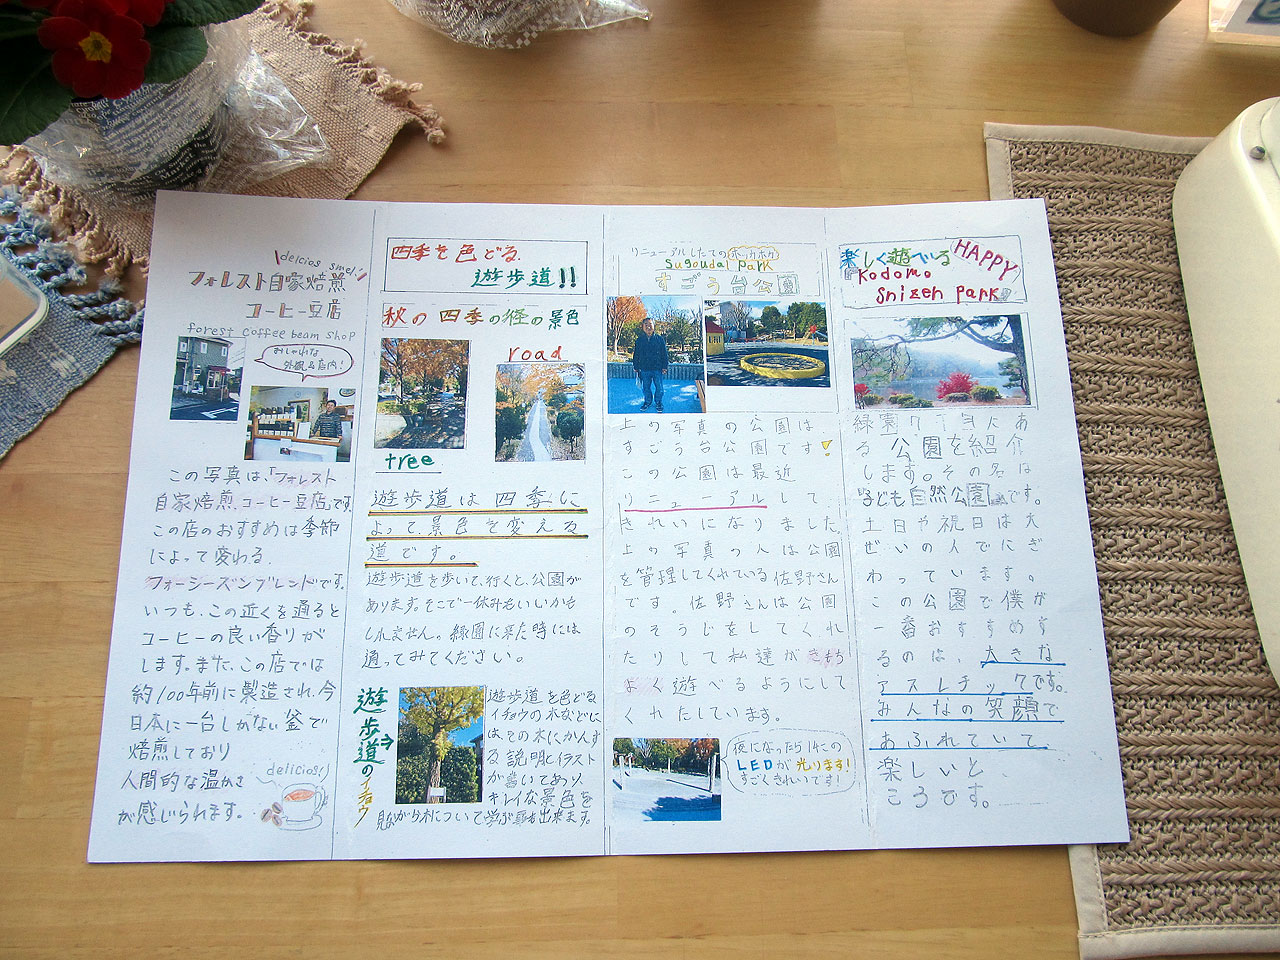 delicios smel!
フォレスト自家焙煎
コーヒー豆店
forest coffee beam shop
おしゃれな
外観&店内!
この写真は、「フォレスト
自家焙煎コーヒー豆店」です。
この店のおすすめは季節
によって変わる、
フォーシーズンブレンドです。
いつも、この近くを通ると
コーヒーの良い香りが
します。また、この店では
約100年前に製造され、今
日本に一台しかない釜で
焙煎しており
人間的な温かさ
が感じられます。
delicios!
四季を色どる
遊歩道!!
秋の四季の径の景色
road
tree
遊歩道は四季に
よって、景色を変える
道です。
遊歩道を歩いて、行くと、公園が
あります。そこで一休みもいいかも
しれません。緑園に来た時には
通ってみてください。
遊歩道のイチョウ
遊歩道を色どる
イチョウの木などに
はその木にかんす
る説明とイラスト
が書いてあり、
キレイな景色を
見ながら木について学ぶ事も出来ます。
リニューアルしたての ホッカホカ
Sugoudai Park
すごう台公園
上の写真の公園は、
すごう台公園です!
この公園は最近
リニューアルして
きれいになりました。
上の写真の人は公園
を管理してくれている佐野さん
です。佐野さんは公園
のそうじをしてくれ
たりして私達がきもち
よく遊べるようにして
くれたしています。
夜になったら14この
LEDが光ります!
すごくきれいです!
楽しく遊べいる
HAPPY
Kodomo
Snizen park
る公園を紹介
します。その名は
子ども自然公園です。
土日や祝日は大
ぜいの人でにぎ
わっています。
この公園で僕が
一番おすすめす
るのは、大きな
アスレチックです。
みんなの笑顔で
あふれていて
楽しいと
ころです。